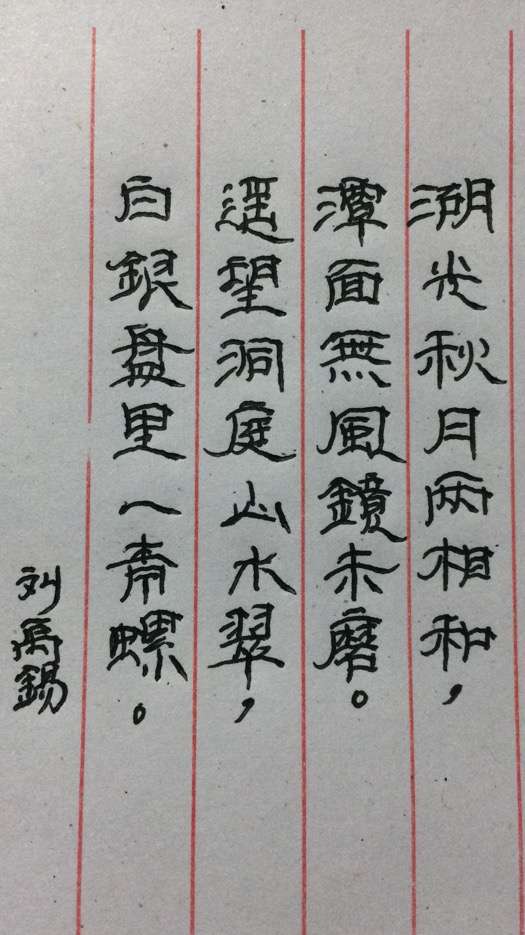 湖光秋月两相和，
潭面無風鏡未磨。
遥望洞庭山水翠，
白銀盘里一青螺。
刘禹錫